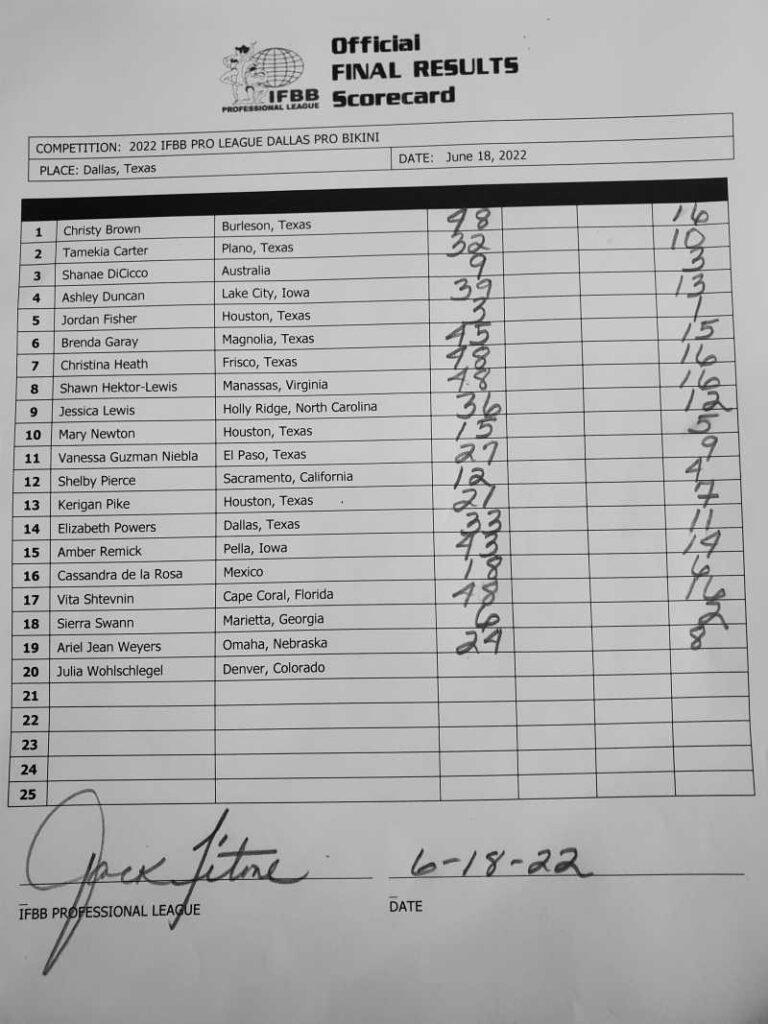 Official
FINAL RESULTS
Scorecard
IFBB
PROFESSIONAL LEAGUE
COMPETITION: 2022 IFBB PRO LEAGUE DALLAS PRO BIKINI
PLACE: Dallas, Texas DATE: June 18, 2022
1 Christy Brown Burleson, Texas 48 16
2 Tamekia Carter Plano, Texas 32 10
3 Shanae DiCicco Australia 9 3
4 Ashley Duncan Lake City, Iowa 39 13
5 Jordan Fisher Houston, Texas 3 1
6 Brenda Garay Magnolia, Texas 45 15
7 Christina Heath Frisco, Texas 48 16
8 Shawn Hektor-Lewis Manassas, Virginia 48 16
9 Jessica Lewis Holly Ridge, North Carolina 36 12
10 Mary Newton Houston, Texas 15 5
11 Vanessa Guzman Niebla El Paso, Texas 27 9
12 Shelby Pierce Sacramento, California 12 4
13 Kerigan Pike Houston, Texas 21 7
14 Elizabeth Powers Dallas, Texas 33 11
15 Amber Remick Pella, Iowa 43 14
16 Cassandra de la Rosa Mexico 18 6
17 Vita Shtevnin Cape Coral, Florida 48 16
18 Sierra Swann Marietta, Georgia 6 2
19 Ariel Jean Weyers Omaha, Nebraska 24 8
20 Julia Wohlschlegel Denver, Colorado
21
22
23
24
25
6-18-22
IFBB PROFESSIONAL LEAGUE DATE